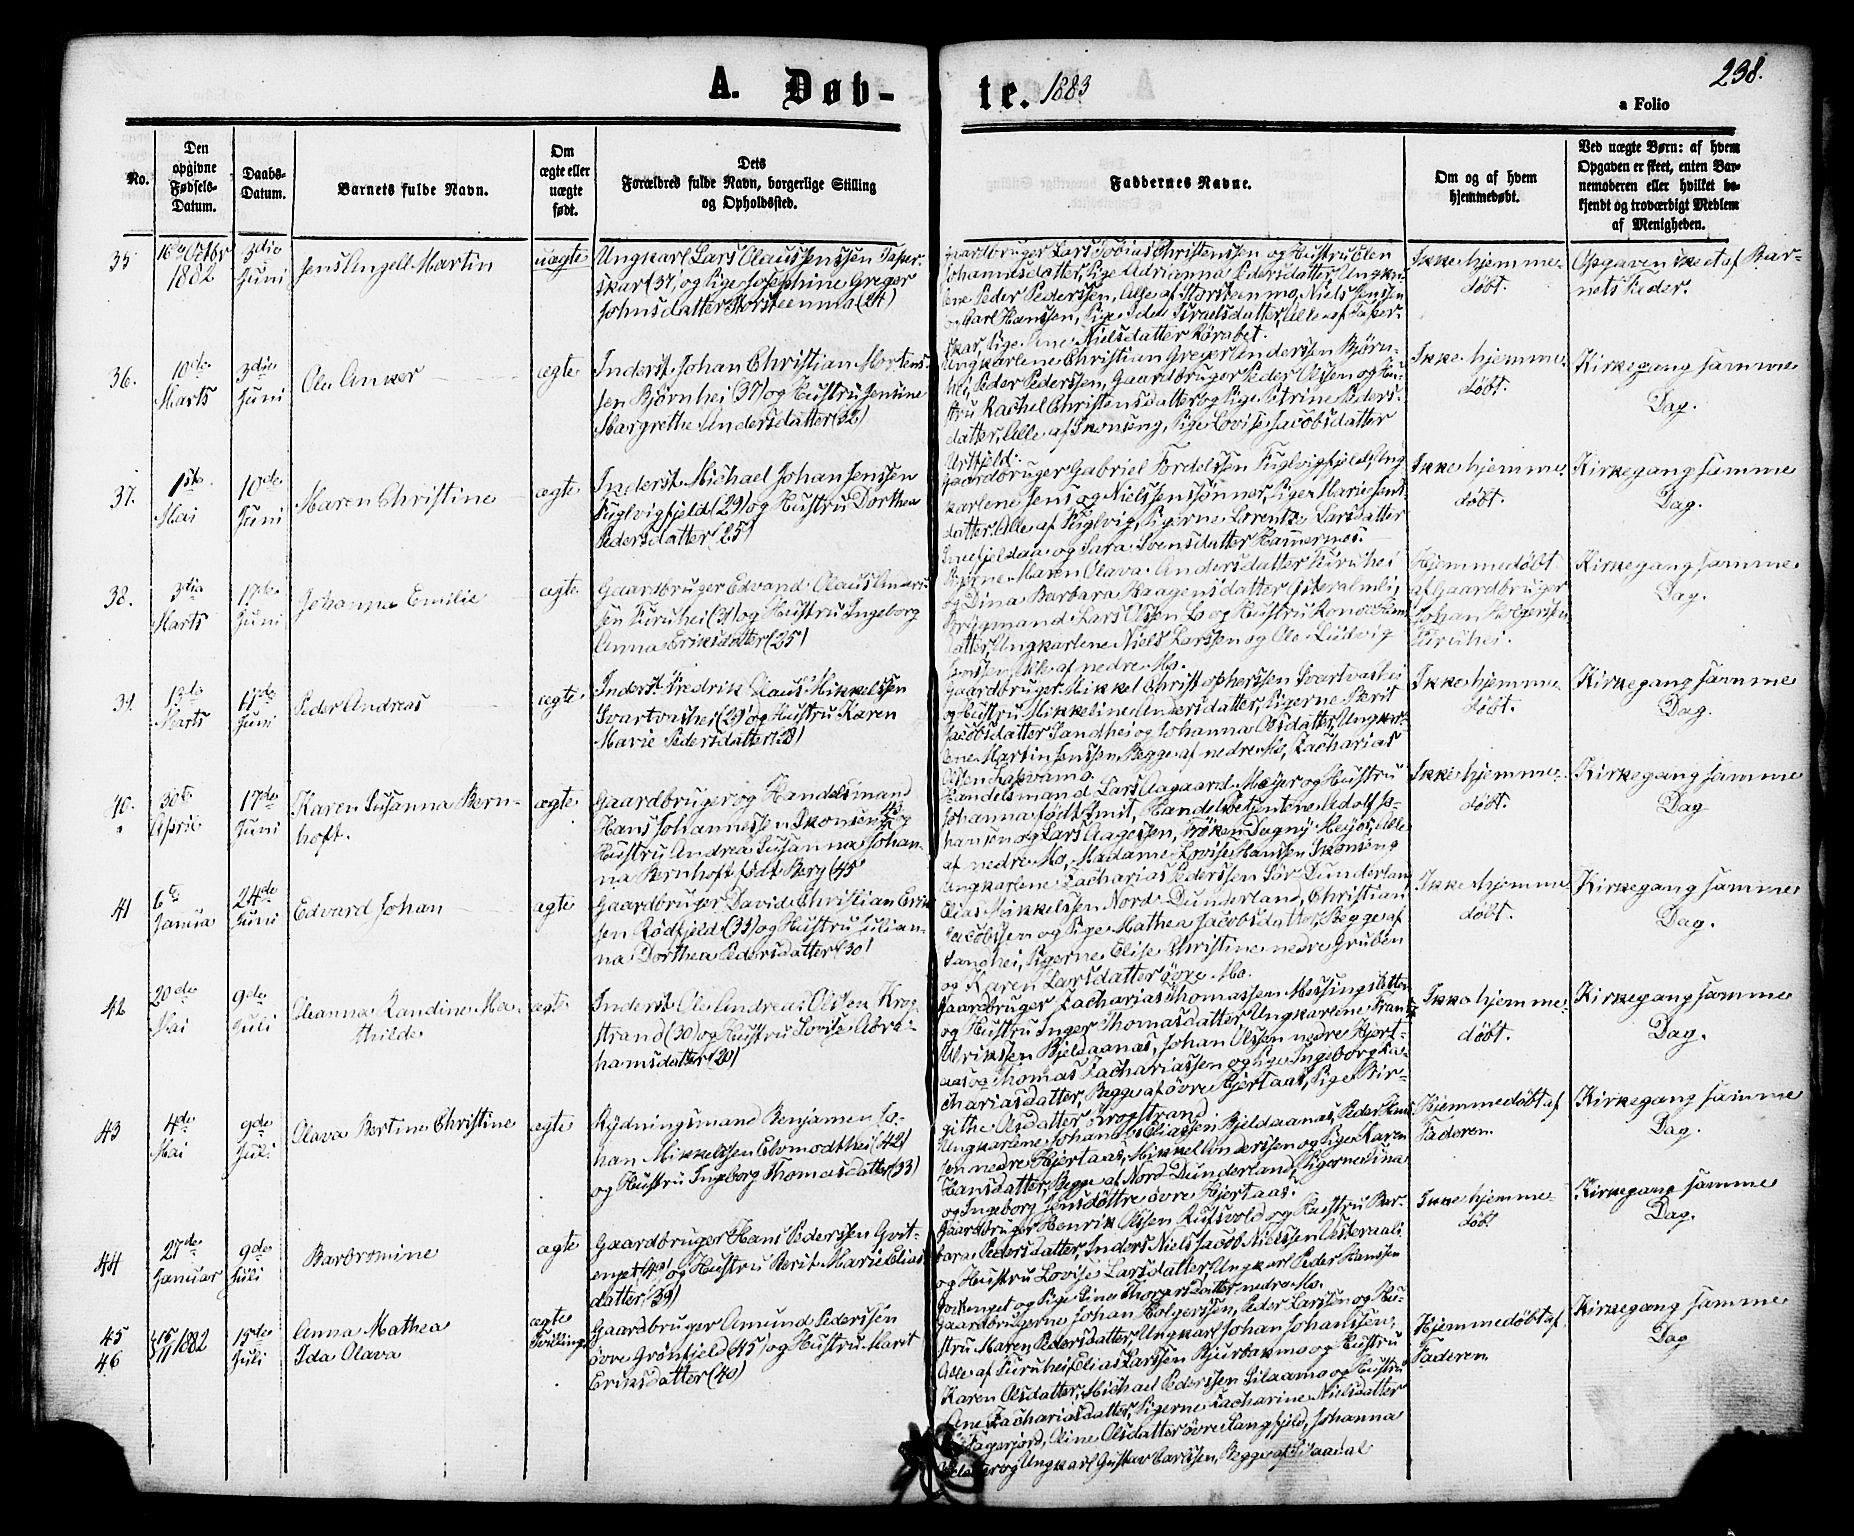 A. Døb-
te. 1883
238.
a Folio
No.
Den
opgivne
Fødsels-
Datum.
Daabs-
Datum.
Barnets fulde Navn.
Om
ægte eller
uægte
født.
Dets
Forældres fulde Navn, borgerlige Stilling
og Opholdssted.
Faddernes Navne.
Om og af hvem
hjemmedøbt.
Ved uægte Børn: af hvem
Opgaven er skeet, enten Bar-
nemoderen eller hvilket be-
kjendt og troværdigt Medlem
af Menigheden.
35
16de Octbr
1882
3die
Juni
Jens Angell Martin
uægte
Ungkarl Lars Olaus Jenssen Taper-
skar (31) og Pige Josephine Greger
Johnsdatter Storsteenmo (24)
Gaardbruger Lars Tobias Christenssen og Hustru Elen
Johannesdatter, Pige Adrianna Pedersdatter, Ungkar-
lene Peder Pederssen, Alle af Storsteenmo, Niels Jenssen
og Carl Hanssen, Pige Ida Israelsdatter, Alle af Taper-
skar, Pige Ane Nielsdatter Rørabet.
Ikke hjemme-
døbt.
Opgaven skeet af Bar-
nets Fader.
36.
10de
Marts
3die
Juni
Ole Anker
ægte
Inderst Johan Christian Mortens-
sen Bjørnhei (37) og Hustru Jentine
Margrethe Andersdatter (32)
Ungkarlene Christian Greger Anderssen Bjørn-
hei, Peder Pederssen, Gaardbruger Peder Olssen og Hu-
stru Rachel Christensdatter og Pige Petrine Peders-
datter, Alle af Skonseng, Pige Lovise Jacobsdatter
Urtfjeld.
Ikke hjemme-
døbt.
Kirkegang samme
Dag.
37.
1ste
Mai
10de
Juni
Maren Christine
ægte
Inderst Michael Johan Jenssen
Fuglvigfjeld (29) og Hustru Dorthea
Pedersdatter (25)
Gaardbruger Gabriel Fordelssen Fuglvigfjeld, Ung-
karlene Jens og Niels Jenssønner, Pige Marie Jens-
datter, Alle af Fuglvig, Pigerne Lorentse Larsdatter
og Sara Svensdatter Hammernes.
Ikke hjemme-
døbt.
Kirkegang samme
Dag.
38.
3die
Marts
17de
Juni
Johanna Emilie
ægte
Gaardbruger Edvard Olaus Anders-
sen Furuhei (31) og Hustru Ingeborg
Anna Eriksdatter (25)
Pigerne Maren Olava Andersdatter Furuhei
og Dina Barbara Haagensdatter
Brügmand Lars Olssen Lo og Hustru
datter, Ungkarlene Niels Larssen og Ole Ludvig
Jenssen, Alle af nedre Mo.
Hjemmedøbt
af Gaardbruger
Johan Holgerssen
Furuhei.
Kirkegang samme
Dag.
39.
13de
Marts
17de
Juni
Peder Andreas
ægte
Inderst Fredrik Olaus Mikkelssen
Svartvashei (29) og Hustru Karen
Marie Pedersdatter (28)
Gaardbruger Mikkel Christophersen Svartvashei
og Hustru Mikkeline Andersdatter, Pigerne Berit
Jacobsdatter Sandhei og Johanna Olsdatter, Ungkar-
lene Martin Jenssen Begge af nedre Mo, Zacharias
Olsen
Ikke hjemme-
døbt.
Kirkegang samme
Dag.
40.
30te
April
17de
Juni
Karen Susanna Bern-
hoft.
ægte
Gaardbruger og Handelsmand
Hans Johannessen Skonseng og
Hustru Andrea Susanna Johan-
na Bernhoft født Berg (45)
Handelsmand Lars Aagaard Meyer og Hustru
Johanna født Smit, Handelsbetjentene Adolf Jo-
hansen og Lars Aagessen, Frøken Dagny Meyer, Alle
af nedre Mo, Madame Lovise Hanssen Skonseng
Ikke hjemme-
døbt.
Kirkegang samme
Dag
41
6te
Janua
24de
Juni
Edvard Johan
ægte
Gaardbruger David Christian Erik-
sen Rødfjeld (33) og Hustru Julian-
na Dorthea Pedersdatter (30)
Ungkarlene Zacharias Pederssen Sør Dunderland,
Elias Mikkelssen Nord Dunderland, Christian
Jacobssen og Pige Mathea Jacobsdatter, Begge af
Langhei, Pigerne Elise Christine nedre Gruben
og Karen Larsdatter øvre Mo.
Ikke hjemme-
døbt.
Kirkegang samme
Dag.
42
20de
Mai
9de
Juli
Oleanna Randine Ma-
thilde
ægte
Inderst Ole Andreas Olssen Krog-
strand (30) og Hustru Lovise Abra-
hamsdatter (20)
Gaardbruger Zacharias Thomassen Messingsletten
og Hustru Inger Thomasdatter, Ungkarlene Frans
Ulrikssen Bjeldaanas, Johan Olssen nedre Hjert-
aas og Thomas Zachariassen og Pige Ingeborg Za-
chariasdatter, Begge af øvre Hjertaas, Pige Bir-
githe Olsdatter Krogstrand
Ikke hjemme-
døbt.
Kirkegang samme
Dag.
43
4de
Mai
9de
Juli
Olava Bertine Christine
ægte
Rydningsmand Benjamen Jo-
han Mikkelssen Ebomodthei (42)
og Hustru Ingeborg Thomasdatter (33)
Ungkarlene Johannes Eliassen Bjeldaanas, Peder Hans-
sen nedre Hjertaas, Mikkel Anderssen og Pige Karen
Hansdatter, Begge af Nord Dunderland, Pigerne Sina
og Ingeborg Jensdøttre øvre Hjertaas.
Hjemmedøbt af
Faderen.
Kirkegang samme
Dag.
44
27de
Januar
9de
Juli
Barbromine
ægte
Gaardbruger Hans Pederssen Gvit-
enget (43) og Hustru Berit Marie Elias-
datter (39)
Gaardbruger Henrik Olssen Rufsvold og Hustru Bar-
bara Pedersdatter, Inders Niels Jacob Nielssen
og Hustru Lovise Larsdatter, Ungkarl Peder Hanssen
og Pige Sina nedre Mo.
Ikke hjemme-
døbt
Kirkegang samme
Dag.
45
46
15/11 1882
15de
Juli
Anna Mathea
Ida Olava
ægte
Tvillinger
Gaardbruger Amund Pederssen
øvre Grønfjeld (45) og Hustru Marit
Eriksdatter (40)
Gaardbrugerne Johan Holgerssen, Peder Larssen og Hu-
stru Maren Pedersdatter, Ungkarl Johan Johanssen,
Alle af Furuhei, Elias Larssen Bjurbækmo og Hustru
Karen Olsdatter, Michael Pederssen Silaamo og Hustru
Ane Zachariasdatter, Pigerne Zacharine Nielsdatter
Fagerjord, Oline Olsdatter øvre Langfjeld, Johanna
og Ungkarl Gustav Carlssen, Begge af Silaadal
Hjemmedøbt af
Faderen.
Kirkegang samme
Dag